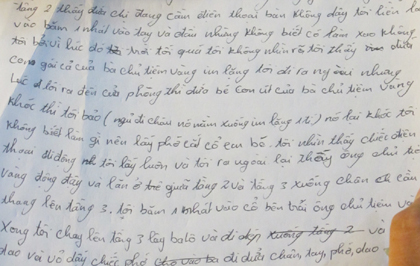 tầng 2 thấy đứa chị đang cầm điện thoại bàn không dây tôi liền
vác bấm 1 nhát vào tay và đầu nhưng không biết có làm sao không
tôi bởi vì lúc do trời tối quá tôi không nhìn rõ tôi thấy đứa
con gái cả của bà chủ tiệm vàng im lặng tôi đi ra ngoài nhưng
lúc tôi ra đến cửa phòng thì đứa bé con út của bà chủ tiệm vàng
khóc thì tôi bảo ( ngủ đi cháu nó nằm xuống im lặng 1 tí) nó lại khóc tôi
không biết làm gì nên lấy phớ cắt cổ em bé. tôi nhìn thấy chiếc điện
thoại di động tôi lấy luôn và tôi ra ngoài lại thấy ông chủ tiệm
vàng động đậy và lăn ở giữa tầng 2 và tầng 3 xuống chân cầu
thang lên tầng 3. tôi bấm 1 nhát vào cổ bên phải ông chủ tiệm và
xong tôi chạy lên tầng 3 lấy balô và đi xuống tầng 2 và
dao và vỏ đây chiếc phớ cho vào ba đi dứa chiên, tay, phớ, dao